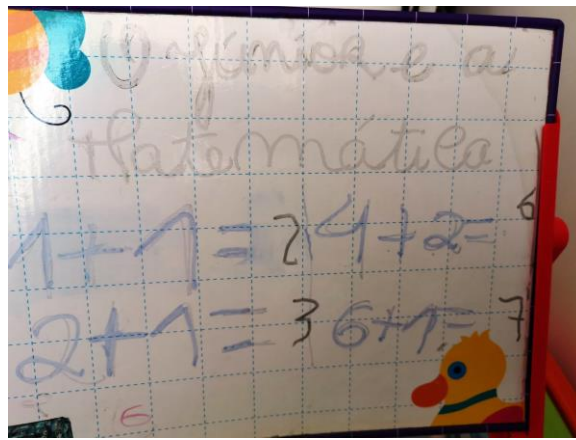 O Júnior e a
Matemática
1+1=2 4+2=6
2+1=3 6+1=7
6